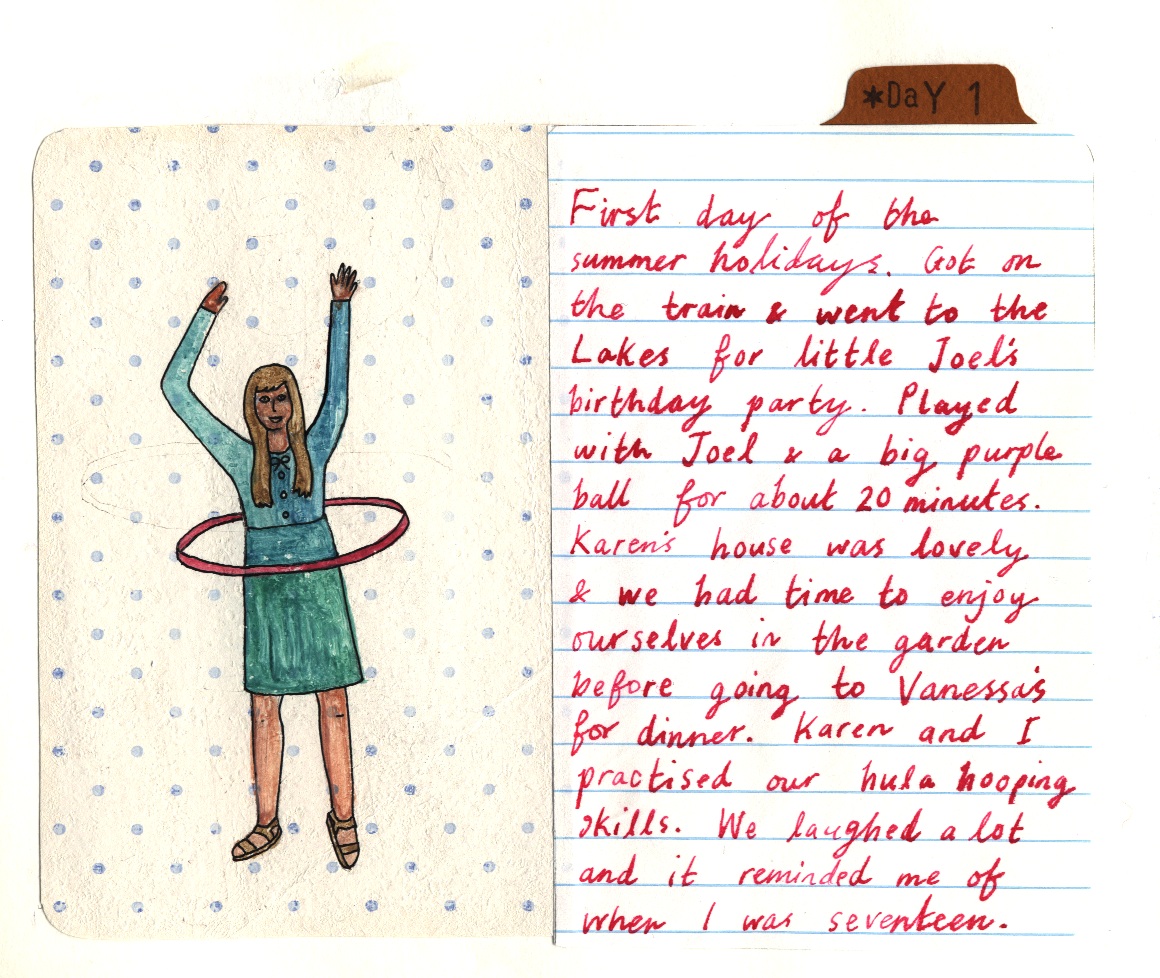 *DaY 1
First day of the
summer holidays. Got on
the train & went to the
Lakes for little Joel's
birthday party. Played
with Joel & a big purple
ball for about 20 minutes.
Karen's house was lovely
& we had time to enjoy
ourselves in the garden
before going to Vanessa's
for dinner. Karen and I
practised our hula hooping
skills. We laughed a lot
and it reminded me of
when I was seventeen.